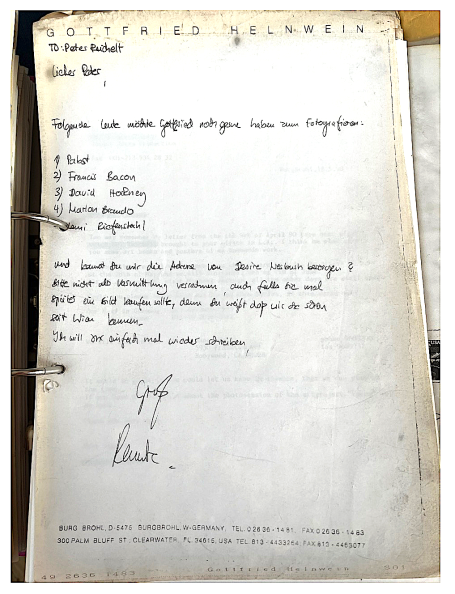 GOTTFRIED HELNWEIN
TO: Peter Reichelt
Lieber Peter
Folgende Leute möchte Gottfried noch gerne haben zum Fotografieren:
1) Pabst
2) Francis Bacon
3) David Hockney
4) Marlon Brando
Leni Riefenstahl
und kannst Du mir die Adresse von Desire Nosbusch besorgen?
Bitte nicht als Vermittlung verrechnen auch falls sie mal
später ein Bild kaufen sollte, denn Du weißt daß wir sie schon
seit Wien kennen.
Ich will ihr einfach mal wieder schreiben,
Gruß
Renate
BURG BROHL, D-5475 BURGBROHL, W-GERMANY, TEL. 02636-1481, FAX 02636-1483
300 PALM BLUFF ST., CLEARWATER, FL 34615, USA TEL. 813-4433264, FAX 813-4463077
49 2636 1483 Gottfried Helnwein S01